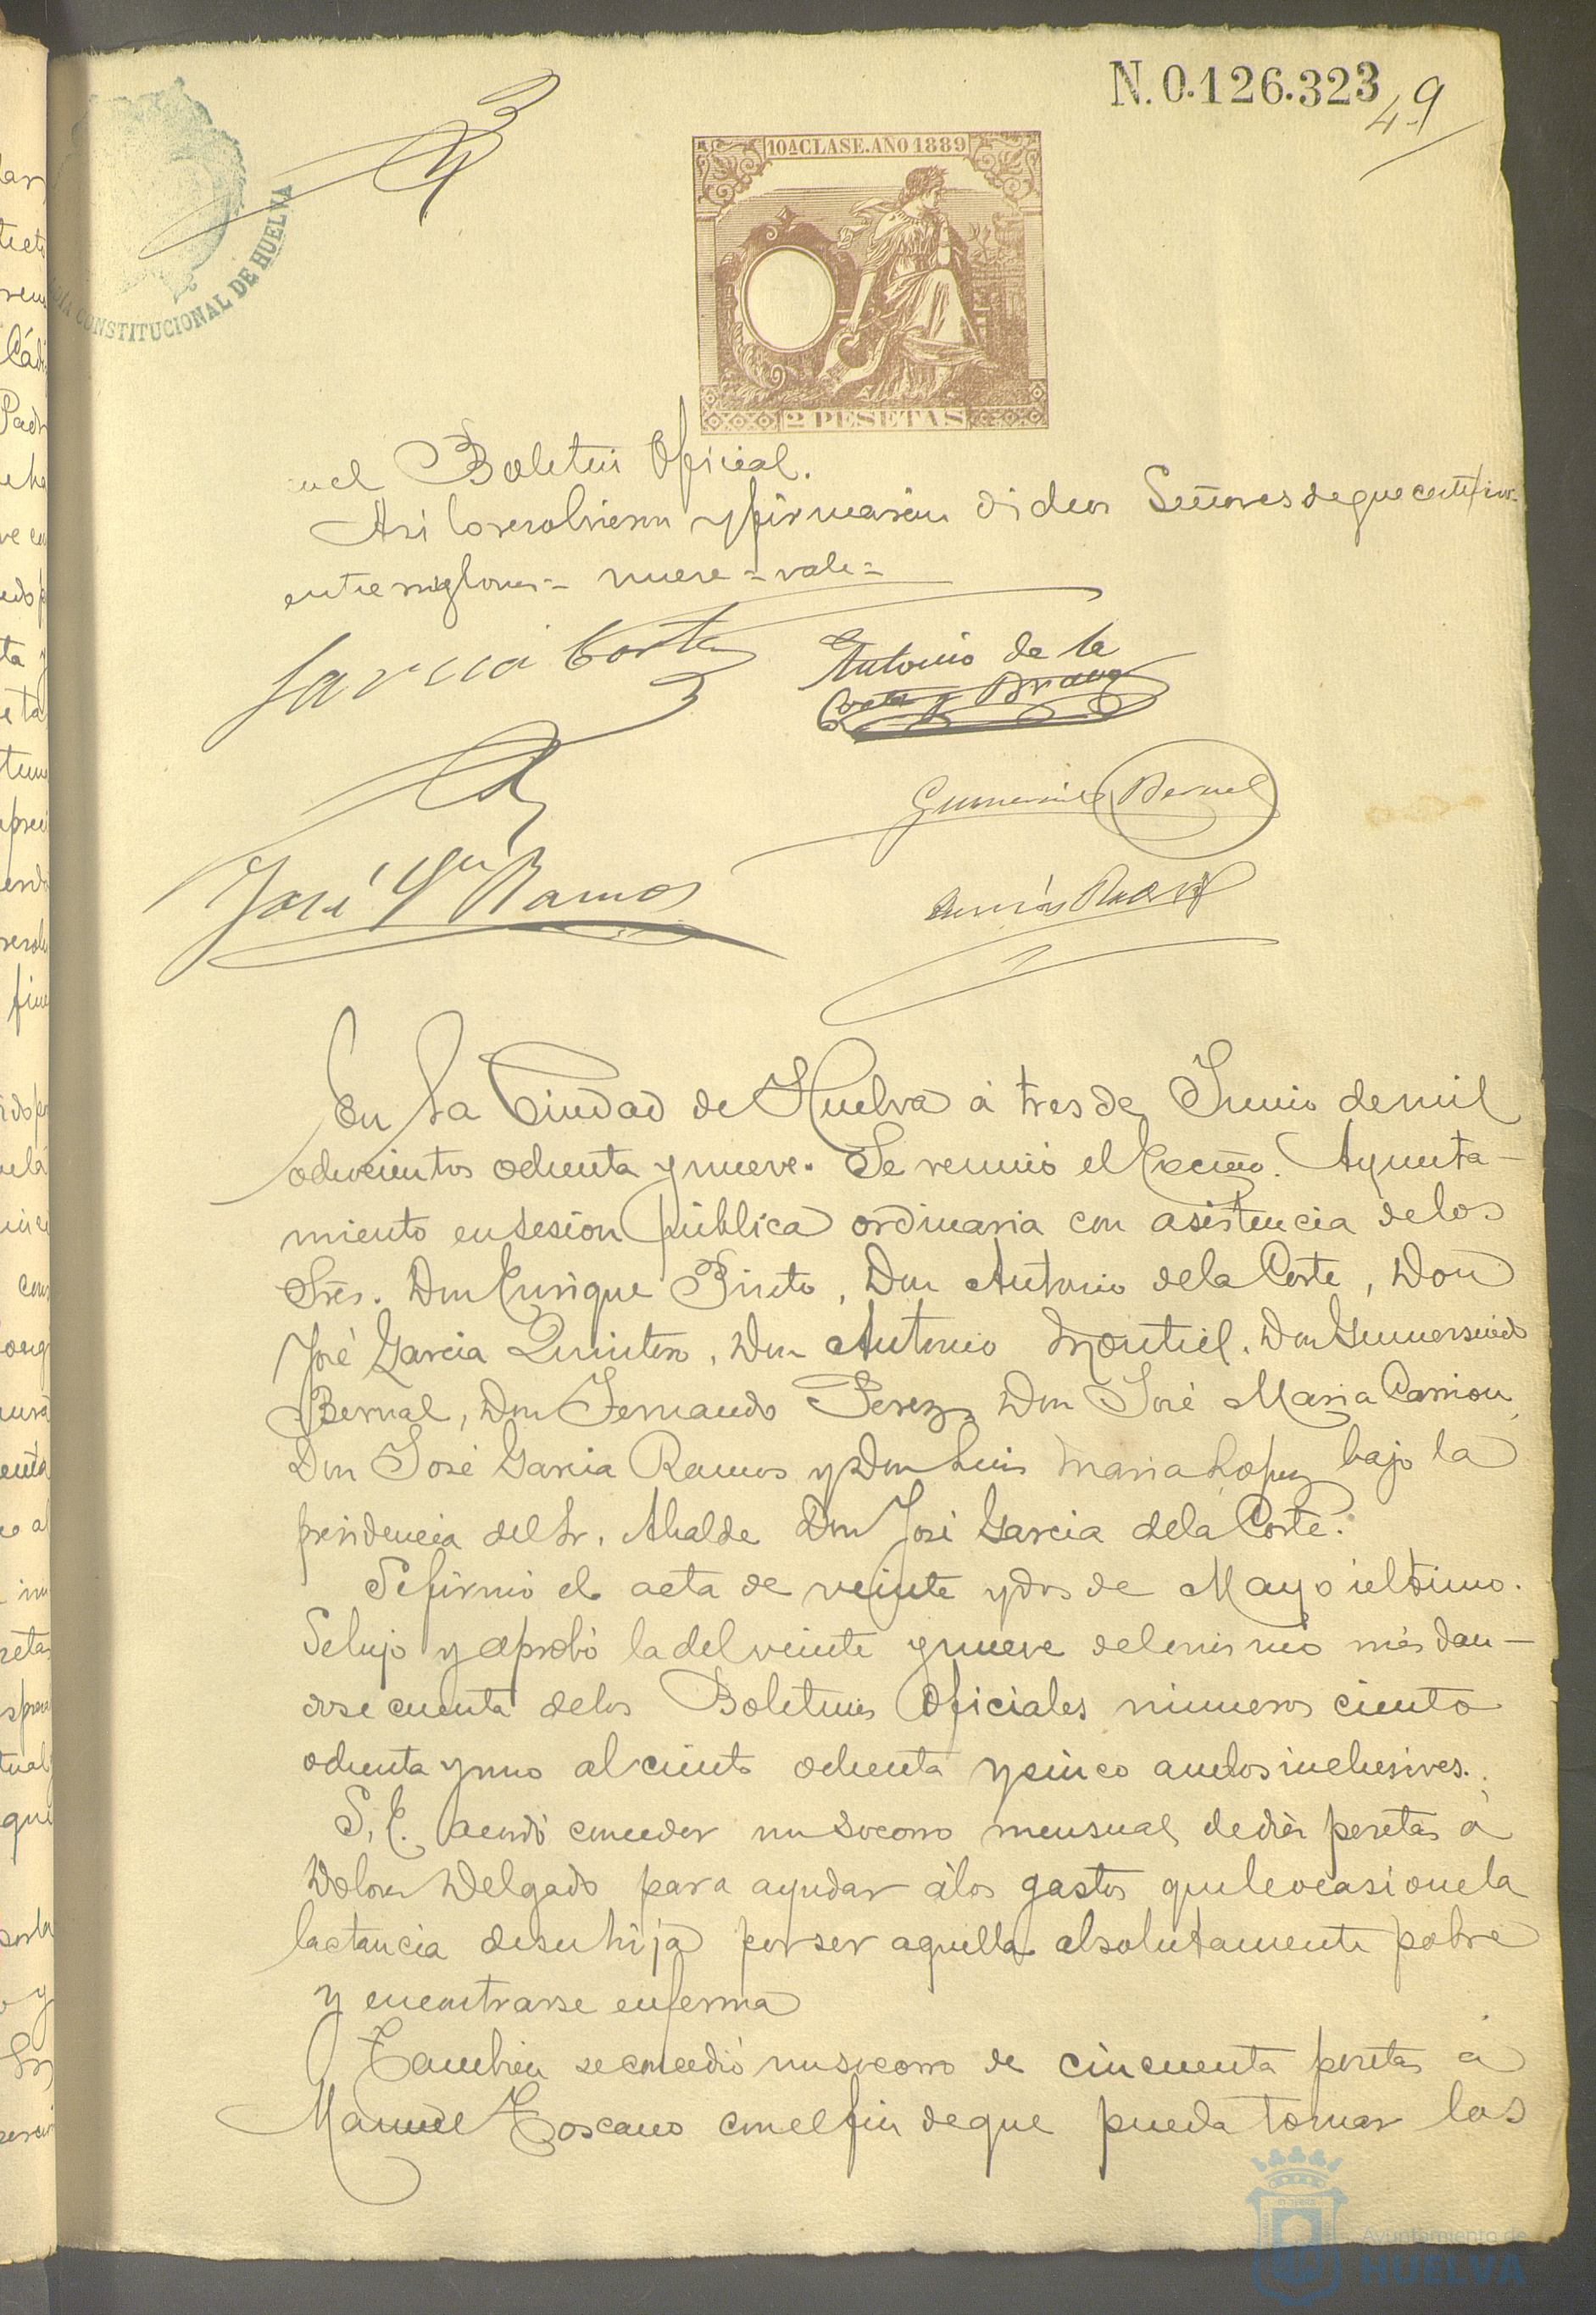 N. 0.126.323
49
10ª CLASE. AÑO 1889
CONSTITUCIONAL DE HUELVA
2 PESETAS
en el Boletin Oficial.
Asi lo resolvieron y firmaron dichos Señores de que certifico=
entrerenglones= nueve = vale =
Garcia Corte
Antonio de la
Corte y
Gumersindo Bernal
José Gª Ramos
En la Ciudad de Huelva á tres de Junio de mil
ochocientos ochenta y nueve. Se reunió el Excmo. Ayunta-
miento en sesion pública ordinaria con asistencia de los
Sres. Don Enrique Prieto, Don Antonio de la Corte, Don
José Garcia Quintero, Don Antonio Montiel. Don Gumersindo
Bernal, Don Fernando Perez, Don José Maria Carrion,
Don José Garcia Ramos y Don Luis Maria Lopez bajo la
presidencia del Sr. Alcalde Don José Garcia de la Corte.
Se firmó el acta de veinte y dos de Mayo último.
Se leyó y aprobó la del veinte y nueve del mismo mes dan-
dose cuenta de los Boletines Oficiales números ciento
ochenta y uno al ciento ochenta y cinco ambos inclusives.
S. E. acordó conceder un socorro mensual de diez pesetas á
Dolores Delgado para ayudar á los gastos que le ocasione la
lactancia de su hija por ser aquella absolutamente pobre
y encontrarse enferma
Tambien se concedió un socorro de cincuenta pesetas á
Manuel Toscano con el fin de que pueda tomar los
Ayuntamiento de
HUELVA